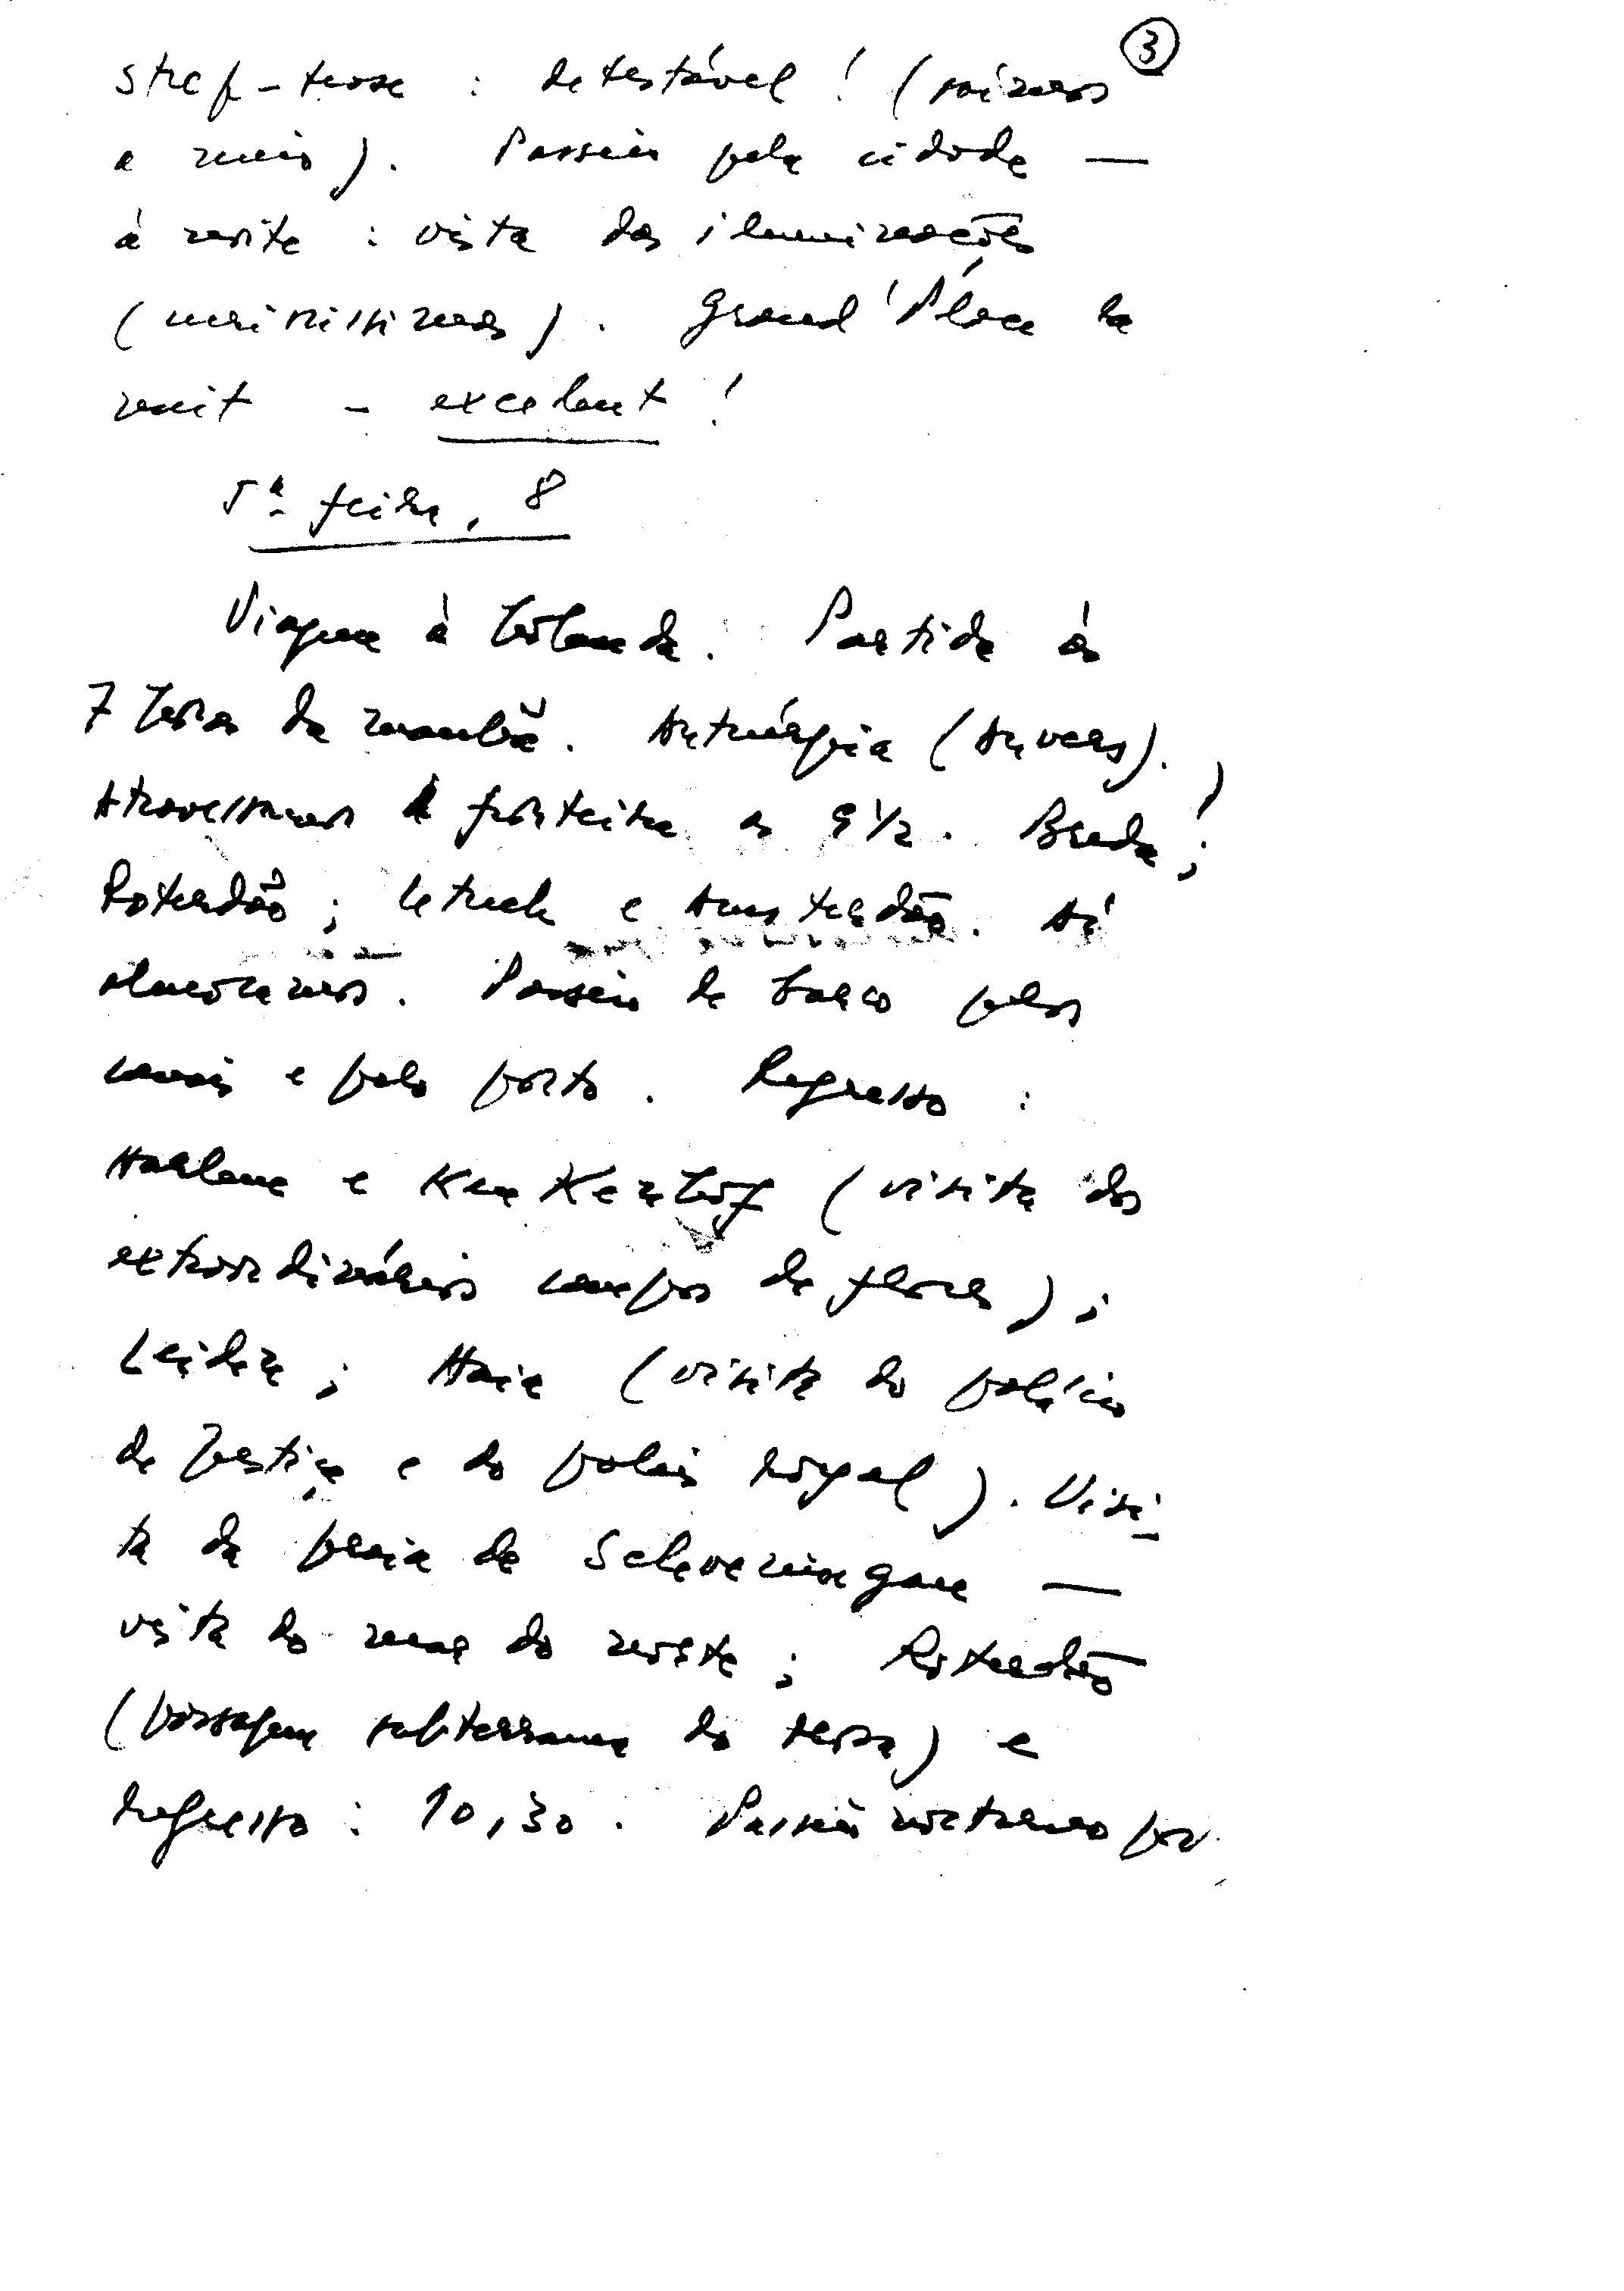 ③
strep-tease : detestável ! (saímos
a meio). Passeio pela cidade —
à noite : vista das iluminações
(muitíssimas). Grand'Place la
nuit - excelent !
5ª feira, 8
Viagem à Holanda. Partida às
7 horas da manhã. Antuérpia (Anvers).
Atravessamos a fronteira às 9 1/2. Breda ;
Roterdão ; Utrech e Amsterdão. Aí
almoçamos. Passeio de barco pelos
canais e pelo porto. Regresso :
Harlem e KenKenhof (visita dos
extraordinários campos de flores) ;
Leiden ; Haia (visita do palácio
de Justiça e do palais royal). Visi-
ta da praia de Scheveningen —
vista do mar do norte ; Roterdão
(passagem subterranea do) e
regresso : 10,30. Passeio nocturno por